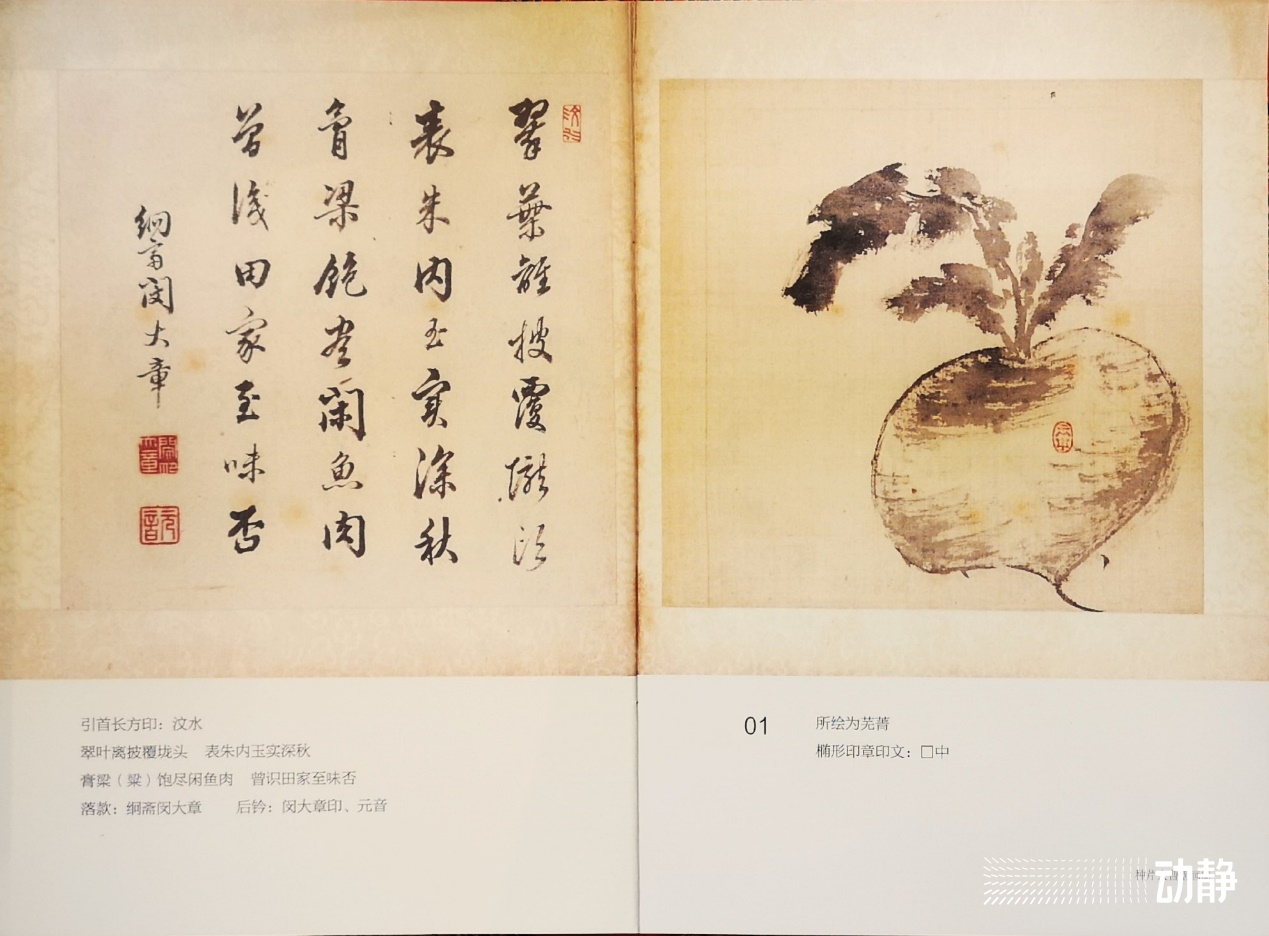 翠葉離披覆壠頭
表朱内玉實深秋
膏梁飽盡閑魚肉
曾識田家至味否
絅齋閔大章
引首长方印：汶水
翠叶离披覆垅头 表朱内玉实深秋
膏梁（粱）饱尽闲鱼肉 曾识田家至味否
落款：絅斋闵大章 后钤：闵大章印、元音
01
所绘为芜菁
椭形印章印文：□中
动静